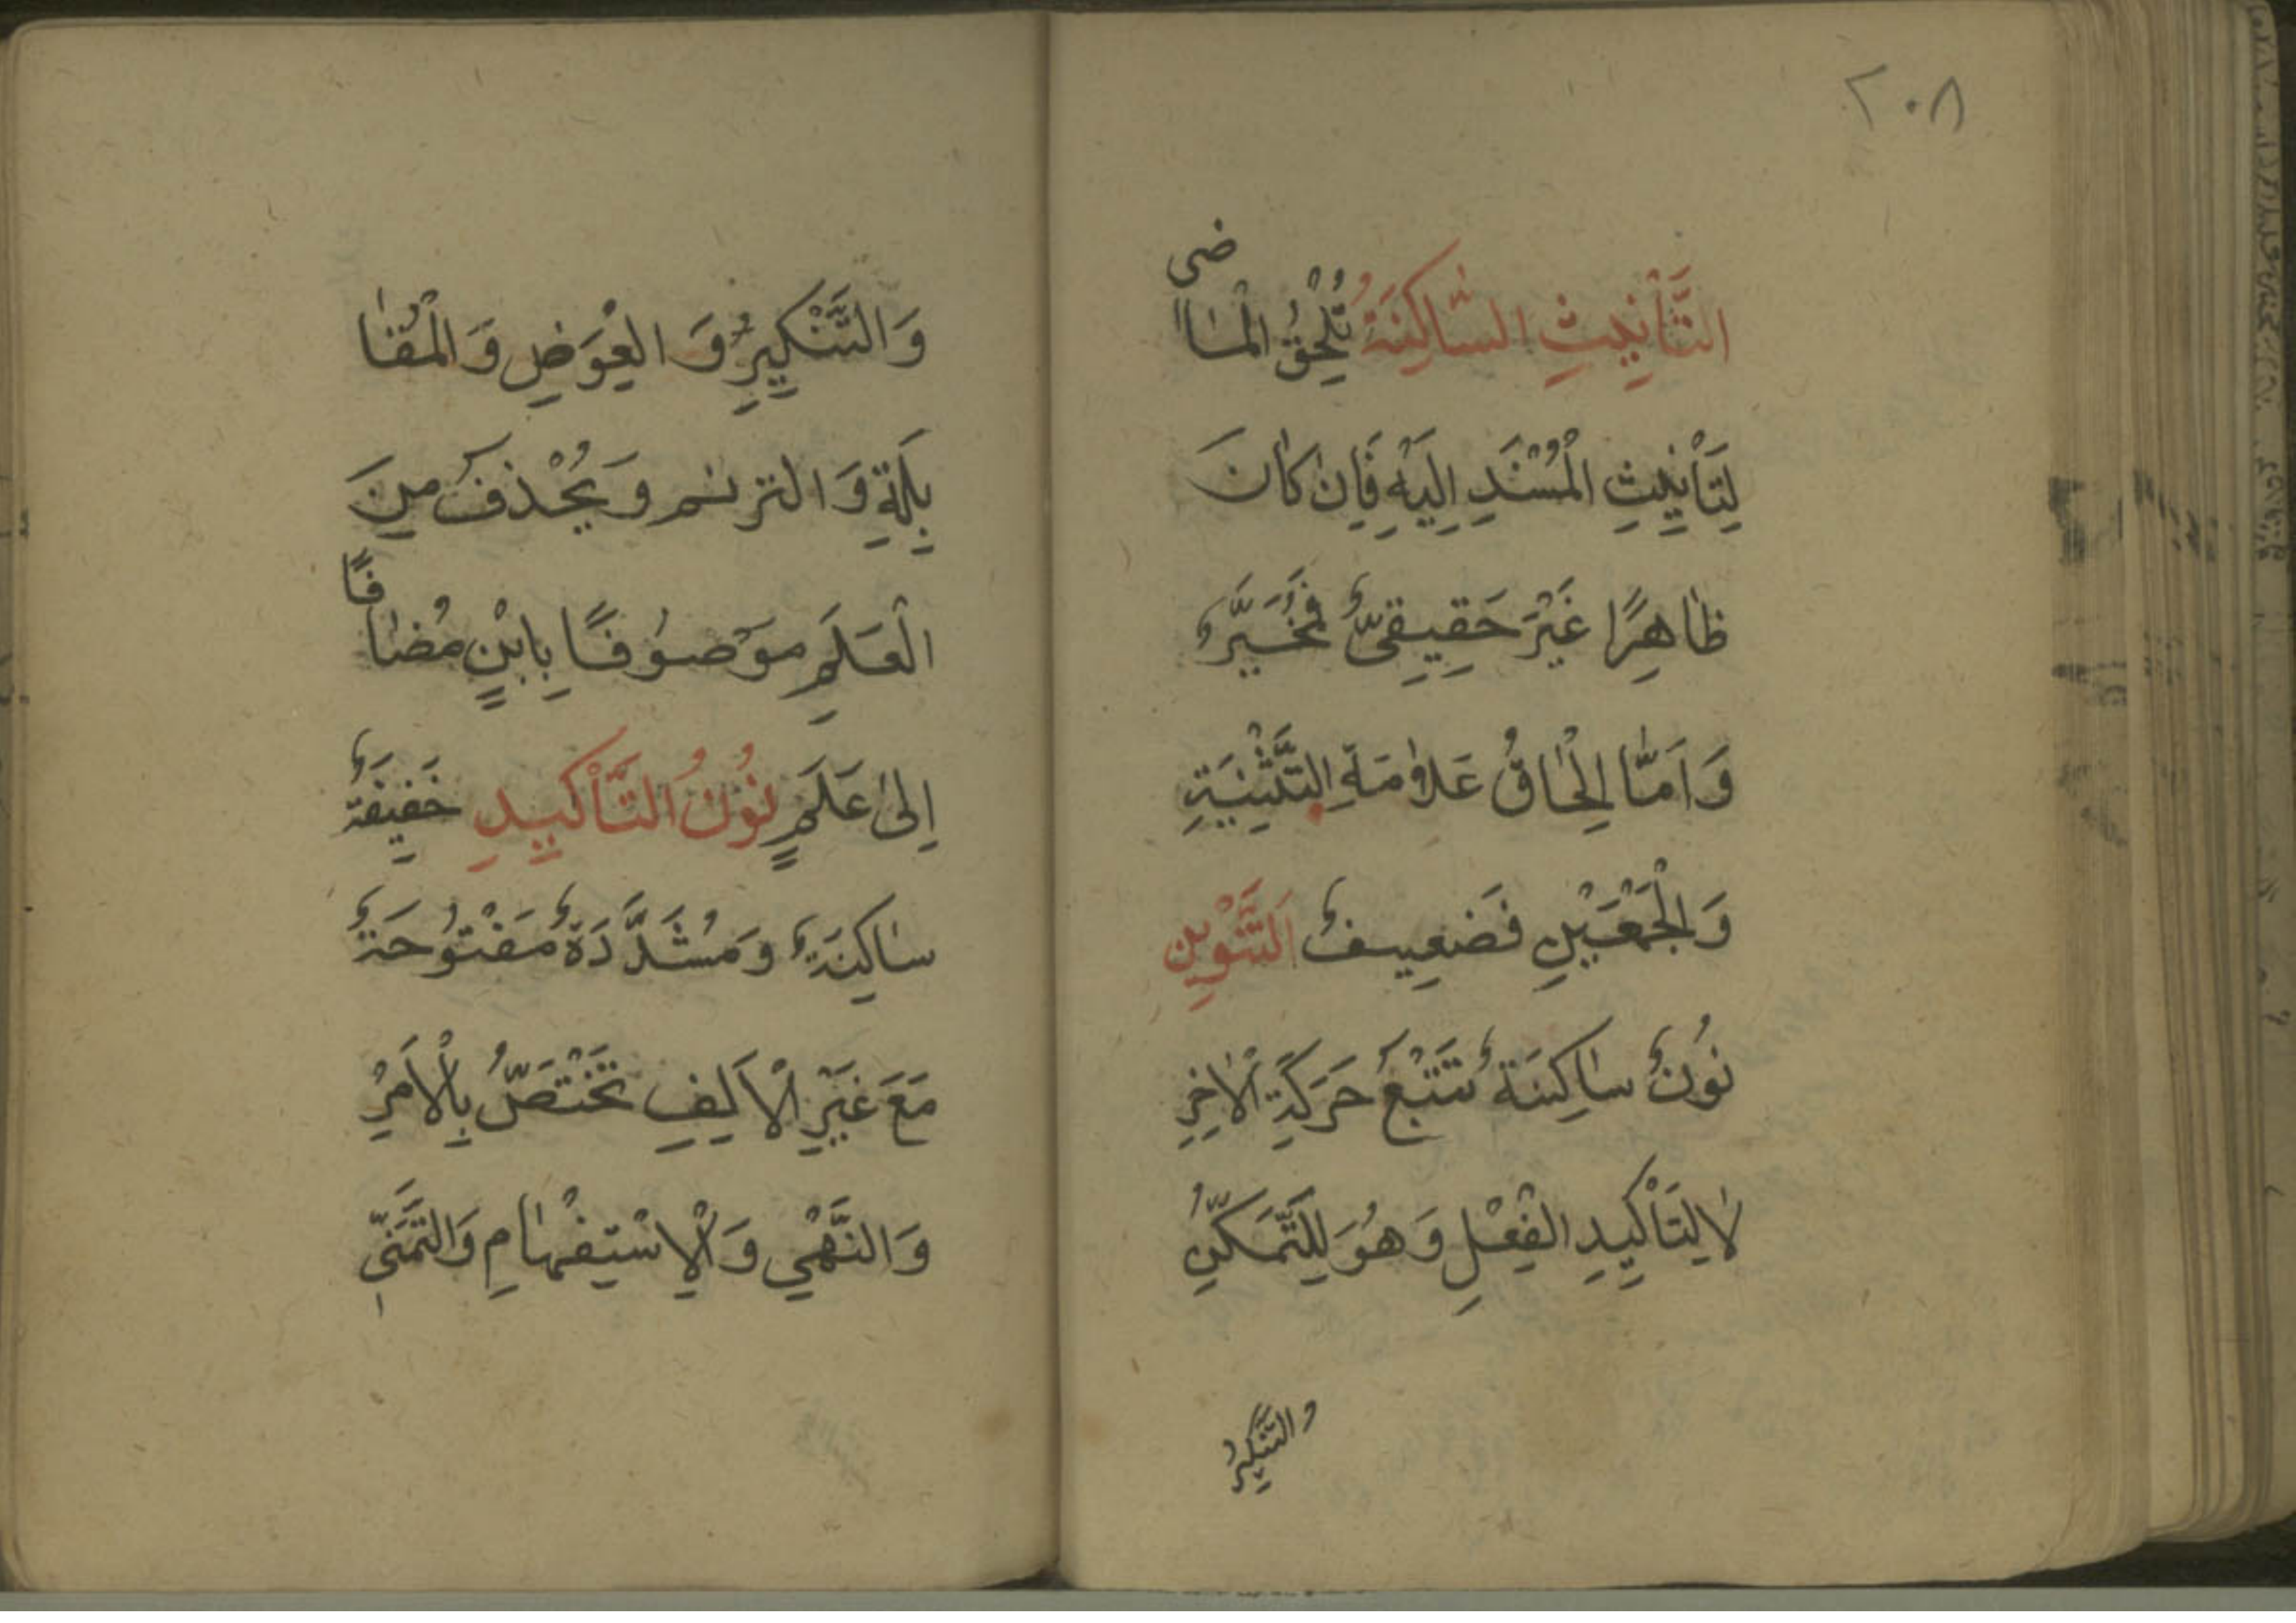 ٢٠٨
التَّأْنِيثِ السَّاكِنَةُ تُلْحِقُ الْمَاضى
لِتَأْنِيثِ الْمُسْنَدِ اِلَيْهِ فَاِنْ كَانَ
ظَاهِرًا غَيْرَ حَقِيقِىٍّ فَمُخَيَّرٌ
وَاَمَّا اِلْحَاقُ عَلَامَةِ التَّثْنِيَةِ
وَالْجَمْعَيْنِ فَضَعِيفٌ اَلتَّنْوِين
نُونٌ سَاكِنَةٌ تَتْبَعُ حَرَكَةِ الْاٰخِرِ
لَا لِتَأْكِيدِ الْفِعْلِ وَهُوَ لِلتَّمَكُّنِ
والتَّنْكِيرُ
وَالتَّنْكِيرِ وَ الْعِوَضِ وَالْمُقَا
بِلَةِ وَ الترنم وَ يُحْذَفُ مِنَ
الْعَلَمِ مَوْصُوفًا بِابْنٍ مُضَافًا
اِلىٰ عَلَمٍ نُونُ التَّأْكِيدِ خَفِيفَةٌ
سَاكِنَةٌ وَ مُشَدَّدَةٌ مَفْتُوحَةٌ
مَعَ غَيْرِ الْاَلِفِ تَخْتَصُّ بِالْاَمْرِ
وَالنَّهْىِ وَالْاِسْتِفْهَامِ وَالتَّمَنّٖى